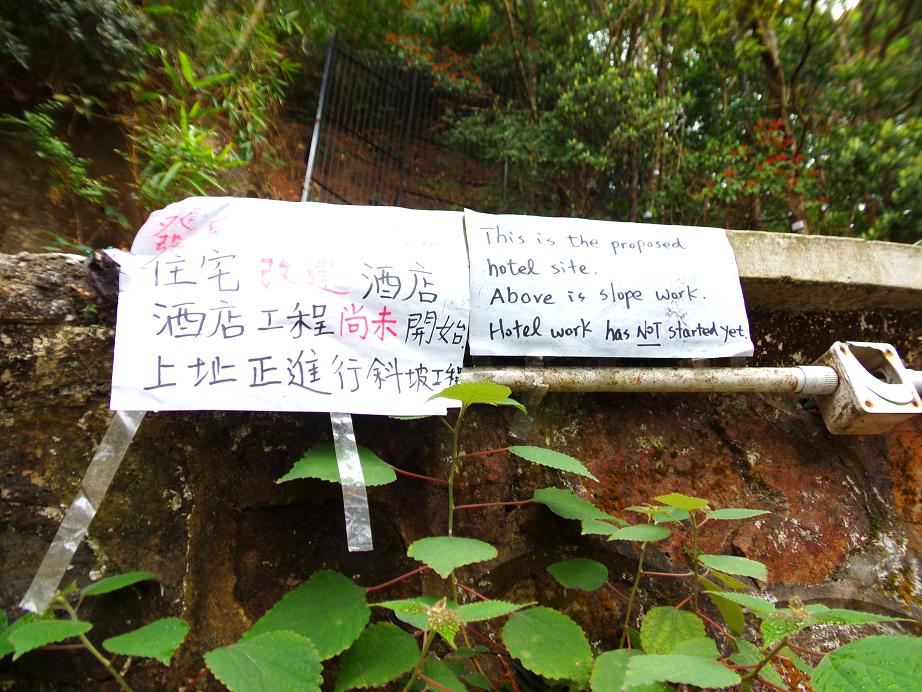 住宅 改建 酒店
酒店工程尚未開始
上址正進行斜坡工程
This is the proposed
hotel site.
Above is slope work.
Hotel work has NOT started yet.